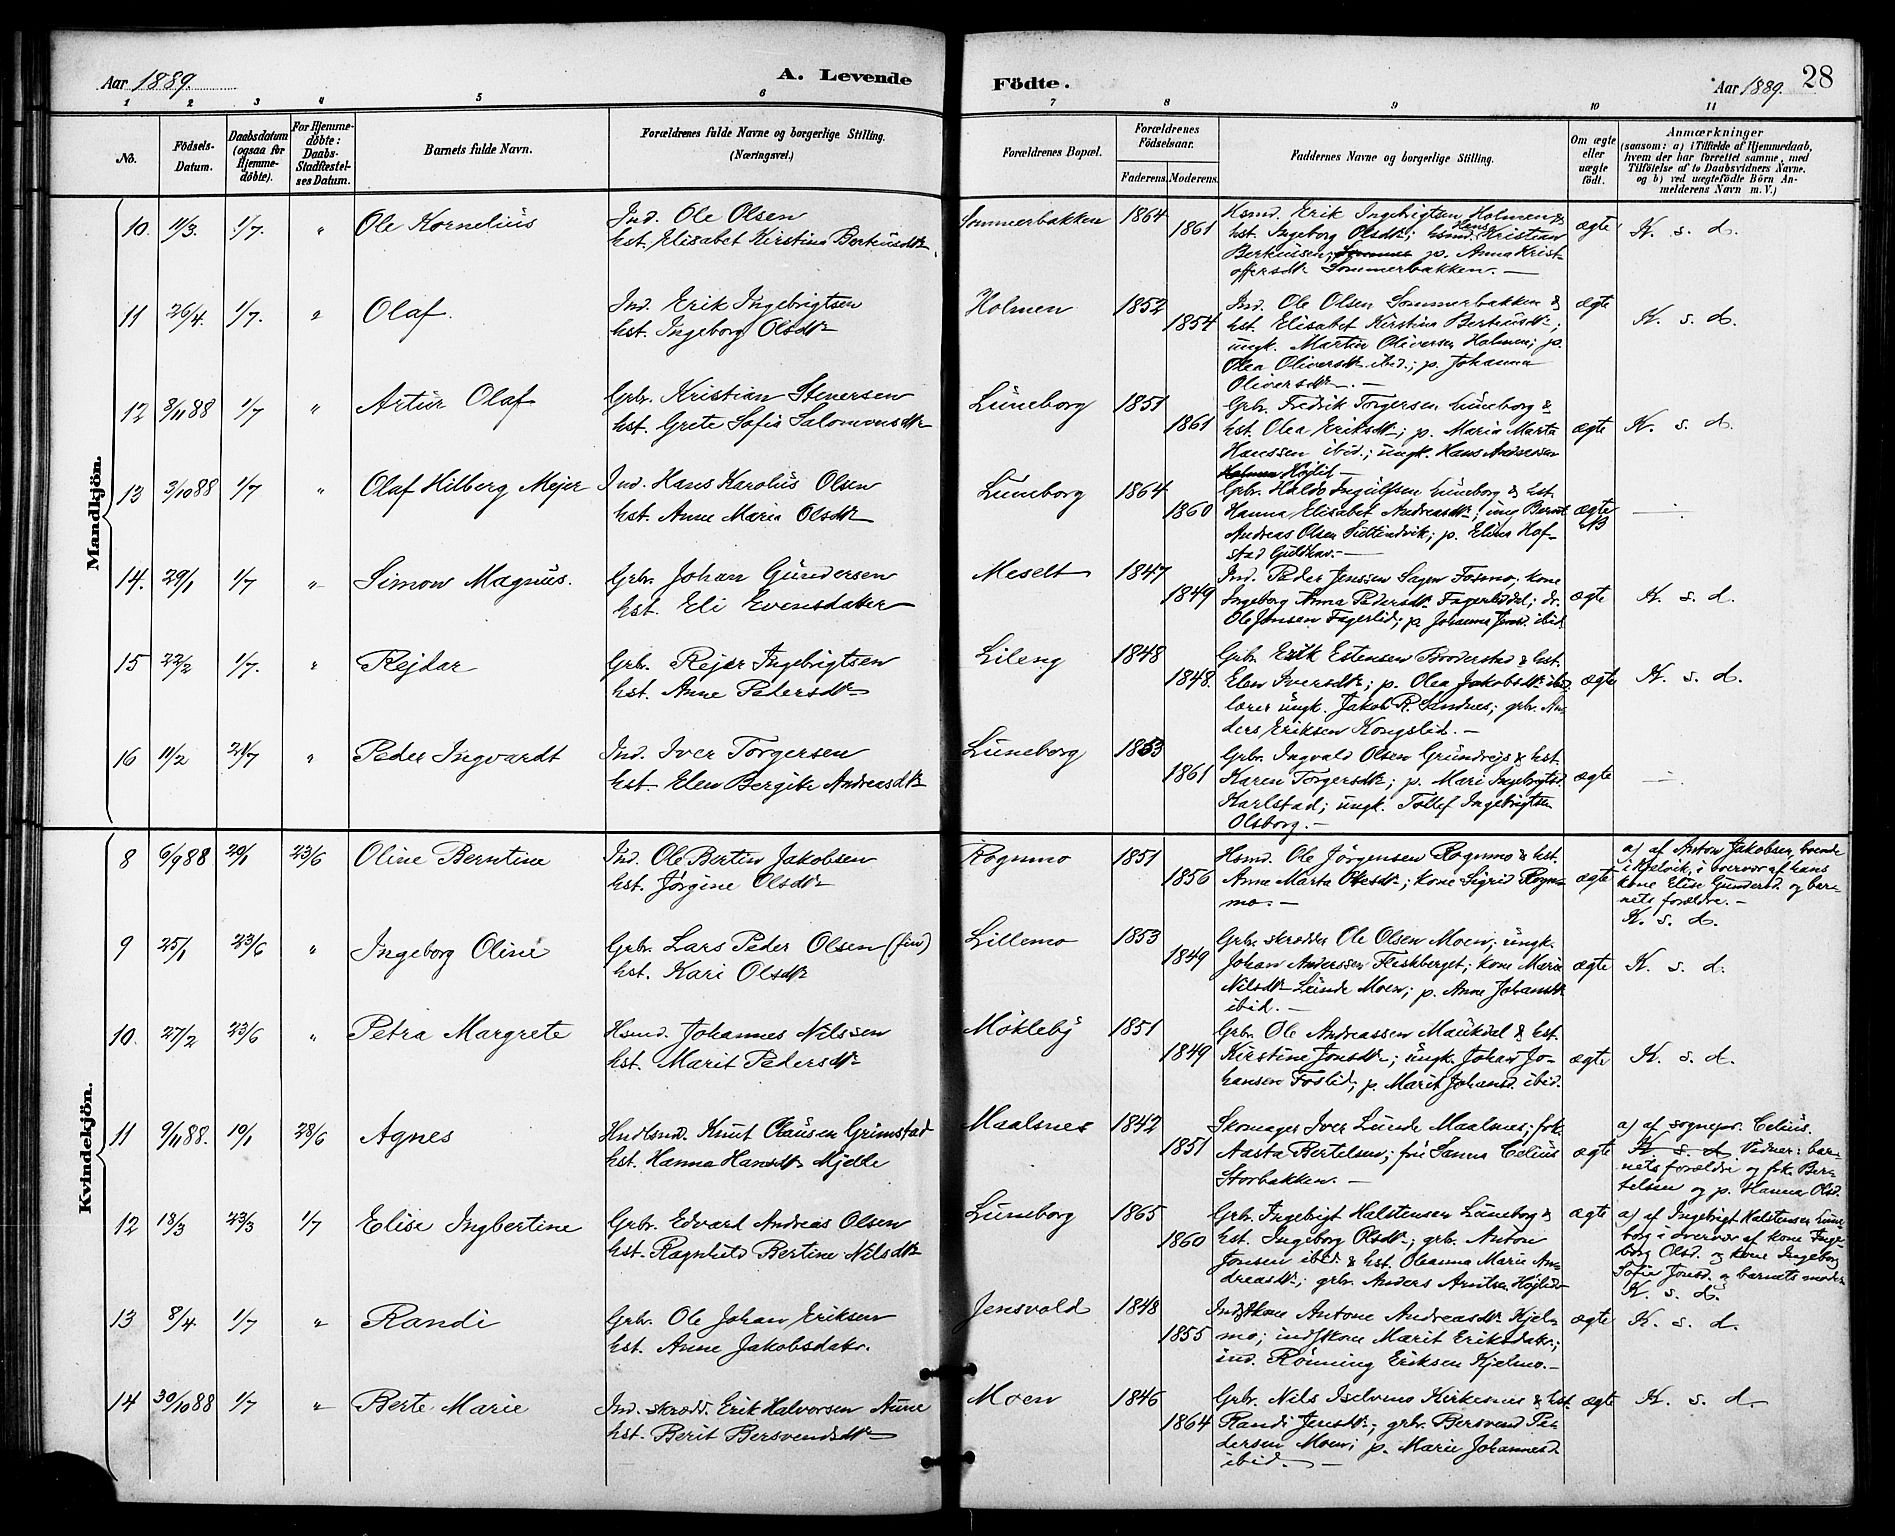 Aar 1889.
A. Levende Födte.
Aar 1889. 28
1 2 3 4 5 6 7 8 9 10 11
No.
Födsels-Datum.
Daabsdatum (ogsaa for Hjemmedöbte).
For Hjemmedöbte: Daabs-Stadfæstelses Datum.
Barnets fulde Navn.
Forældrenes fulde Navne og borgerlige Stilling. (Næringsvei.)
Forældrenes Bopæl.
Forældrenes Födselsaar.
Faderens. Moderens.
Faddernes Navne og borgerlige Stilling.
Om ægte eller uægte födt.
Anmærkninger
(saasom: a) i Tilfælde af Hjemmedaab, hvem der har forrettet samme, med Tilföielse af to Daabsvidners Navne, og b) ved uægtefödte Börn Anmelderens Navn m. V.)
Mandkjön.
10. 11/3. 1/7. " Ole Kornelius
Ind. Ole Olsen
hst. Elisabet Kirstina Berteusdtr
Sommerbakken 1864 1861
Hsmd. Erik Ingebrigtsen Holmen &
hst. Ingeborg Olsdtr; hsmd. Hans Kristian
Berteusen; p. Anna Krist-
offersdtr Sommerbakken.
ægte K. s. d.
11 26/4. 1/7. " Olaf.
Ind. Erik Ingebrigtsen
hst. Ingeborg Olsdtr
Holmen 1852 1854
Ind. Ole Olsen Sommerbakken &
hst. Elisabet Kirstina Berteusdtr;
ungk. Martin Oliversen Holmen; p.
Olea Oliversdtr ibid.; p. Johanna
Oliversdtr.
ægte K. s. d.
12 8/11 88 1/7 " Artur Olaf
Grbr. Kristian Stenersen
hst. Grete Sofie Salomonsdtr
Luneborg 1851 1861
Grbr. Fredrik Torgersen Luneborg &
hst. Olea Eriksdtr; p. Maria Marta
Hanssen ibid.; ungk. Hans Andreasen
Holmen Höglid
ægte K. s. d.
13 3/10 88 1/7 " Olaf Hilberg Mejer
Ind. Hans Karolus Olsen
hst. Anne Maria Olsdtr
Luneborg 1864 1860
Grbr. Haldo Ingulfsen Luneborg & hst.
Hanna Elisabet Andreasdtr; ung Bernt
Andreas Olsen; p. Elina Hof-
stad Guldhav.
ægte NB
14. 29/1 1/7 " Simon Magnus.
Grbr. Johan Gundersen
hst. Eli Evensdatter
Meselt 1847 1849
Ind. Peder Jenssen Sagen Fosmo; kone
Ingeborg Anna Pedersdtr Fagerliddal; dr.
Ole Jonsen Fagerlid; p. Johanna Jonsd. ibid.
ægte K. s. d.
15 22/2 1/7. " Rejdar
Grbr. Rejer Ingebrigtsen
hst. Anne Pedersdtr
Lileng 1848 1848.
Grbr. Erik Estensen Broderstad & hst.
Elen Iversdtr; p. Olea Jakobsdtr ibid.
lærer ungk. Jakob R. Sandnes; grbr. An-
ders Eriksen Kongslid.
ægte K. s. d.
16 11/2 21/7 " Peder Ingvardt
Ind. Iver Torgersen
hst. Elen Bergite Andreasdtr
Luneborg 1853 1861
Grbr. Ingvald Olsen Grundrejs & hst.
Karen Torgersdtr; p. Mari Ingebrigtsd.
Karlstad; ungk. Tollef Ingebrigtsen
Olsborg.
ægte
Kvindekjön.
8 6/9 88 20/1 23/6 Oline Berntine
Ind. Ole Bertin Jakobsen
hst. Jörgine Olsdtr
Rognmo 1851 1856
Hsmd. Ole Jörgensen Rognmo & hst.
Anne Marta Olesdtr; kone Sigrid Rogn-
mo.
ægte
a) af Anton Jakobsen, boende
i Kjelvik, i overvær af hans
kone Elise Gundersd. og bar-
nets forældre.
K. s. d.
9 25/1 23/6 " Ingeborg Oline
Grbr. Lars Peder Olsen (fin)
hst. Kari Olsdtr
Lillemo 1853 1849
Grbr. skrædder Ole Olsen Moen; ungk.
Johan Anderssen Fleskberget; kone Marie
Nilsdtr Lunde Moen; p. Anne Johansdtr
ibid.
ægte K. s. d.
10. 27/2 23/6 " Petra Margrete
Hsmd. Johannes Nilssen
hst. Marit Pedersdtr
Mökleby 1851 1849
Grbr. Ole Andreassen Maukdal & hst.
Kirstine Jonsdtr; ungk. Johan Jo-
hansen Foslid; p. Marit Johansd. ibid.
ægte K. s. d.
11 9/11 88. 10/1 28/6 Agnes
Hndlsmd. Knut Clausen Grimstad
hst. Hanna Hansdtr Mjelle
Maalsnes 1842 1851
Skomager Iver Lunde Maalsnes; frk.
Aasta Bertelsen; fru Sanna Celius
Storbakken.
ægte
a) af sognepr. Celius.
K. s. d. Vidner: bar-
nets forældre og frk. Ber-
telsen og p. Hanna Olsd.
12 18/3 23/3 1/7 Elise Ingbertine
Grbr. Edvard Andreas Olsen
hst. Ragnhild Bertine Nilsdtr
Luneborg 1865 1860
Grbr. Ingebrigt Halstensen Luneborg &
hst. Ingeborg Olsdtr; grbr. Anton
Jonsen ibid. & hst. Oleanna Marie An-
dreasdtr; grbr. Anders Arntsen Höglid
ægte
a) af Ingebrigt Halstensen Lune-
borg i overvær af kone Inge-
borg Olsd. og kone Ingeborg
Sofie Jonsd. & barnets moder
K. s. d.
13 8/4 1/7 " Randi
Grbr. Ole Johan Eriksen
hst. Anne Jakobsdatr.
Jensvold 1848 1855
Indstkone Antone Andreasdtr Kjel-
mo; indstkone Marit Eriksdatr.;
ind. Rönning Eriksen Kjelmo.
ægte K. s. d.
14 30/10 88 1/7 " Berte Marie
Ind. skrædd. Erik Halvorsen Aune
hst. Berit Bersvendsdtr
Moen 1846 1864
Grbr. Nils Iselvmo Kirkemo & hst.
Randi Jensdtr; grbr. Bersvend Pe-
dersen Moen; p. Marie Johannesd.
ibid.
ægte K. s. d.